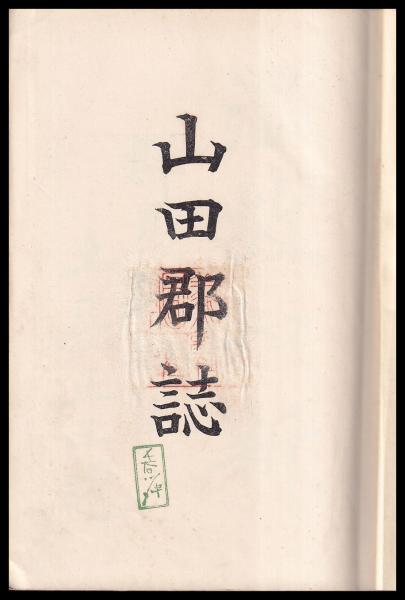 山田郡誌